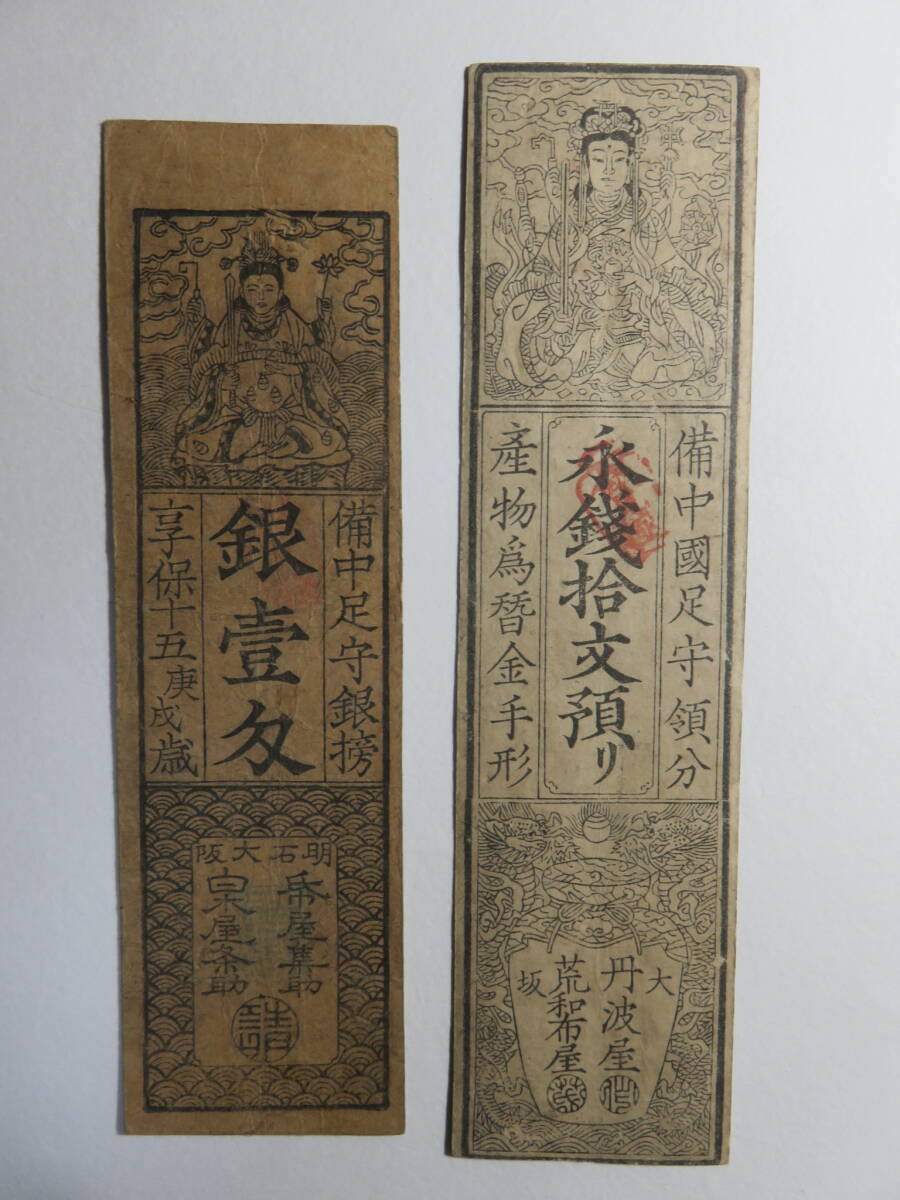 備中足守銀搒
銀壹匁
享保十五庚戌歳
明石大阪
屋集助
泉屋粂助
備中國足守領分
永錢拾文預リ
產物爲替金手形
大坂
丹波屋
荒和布屋